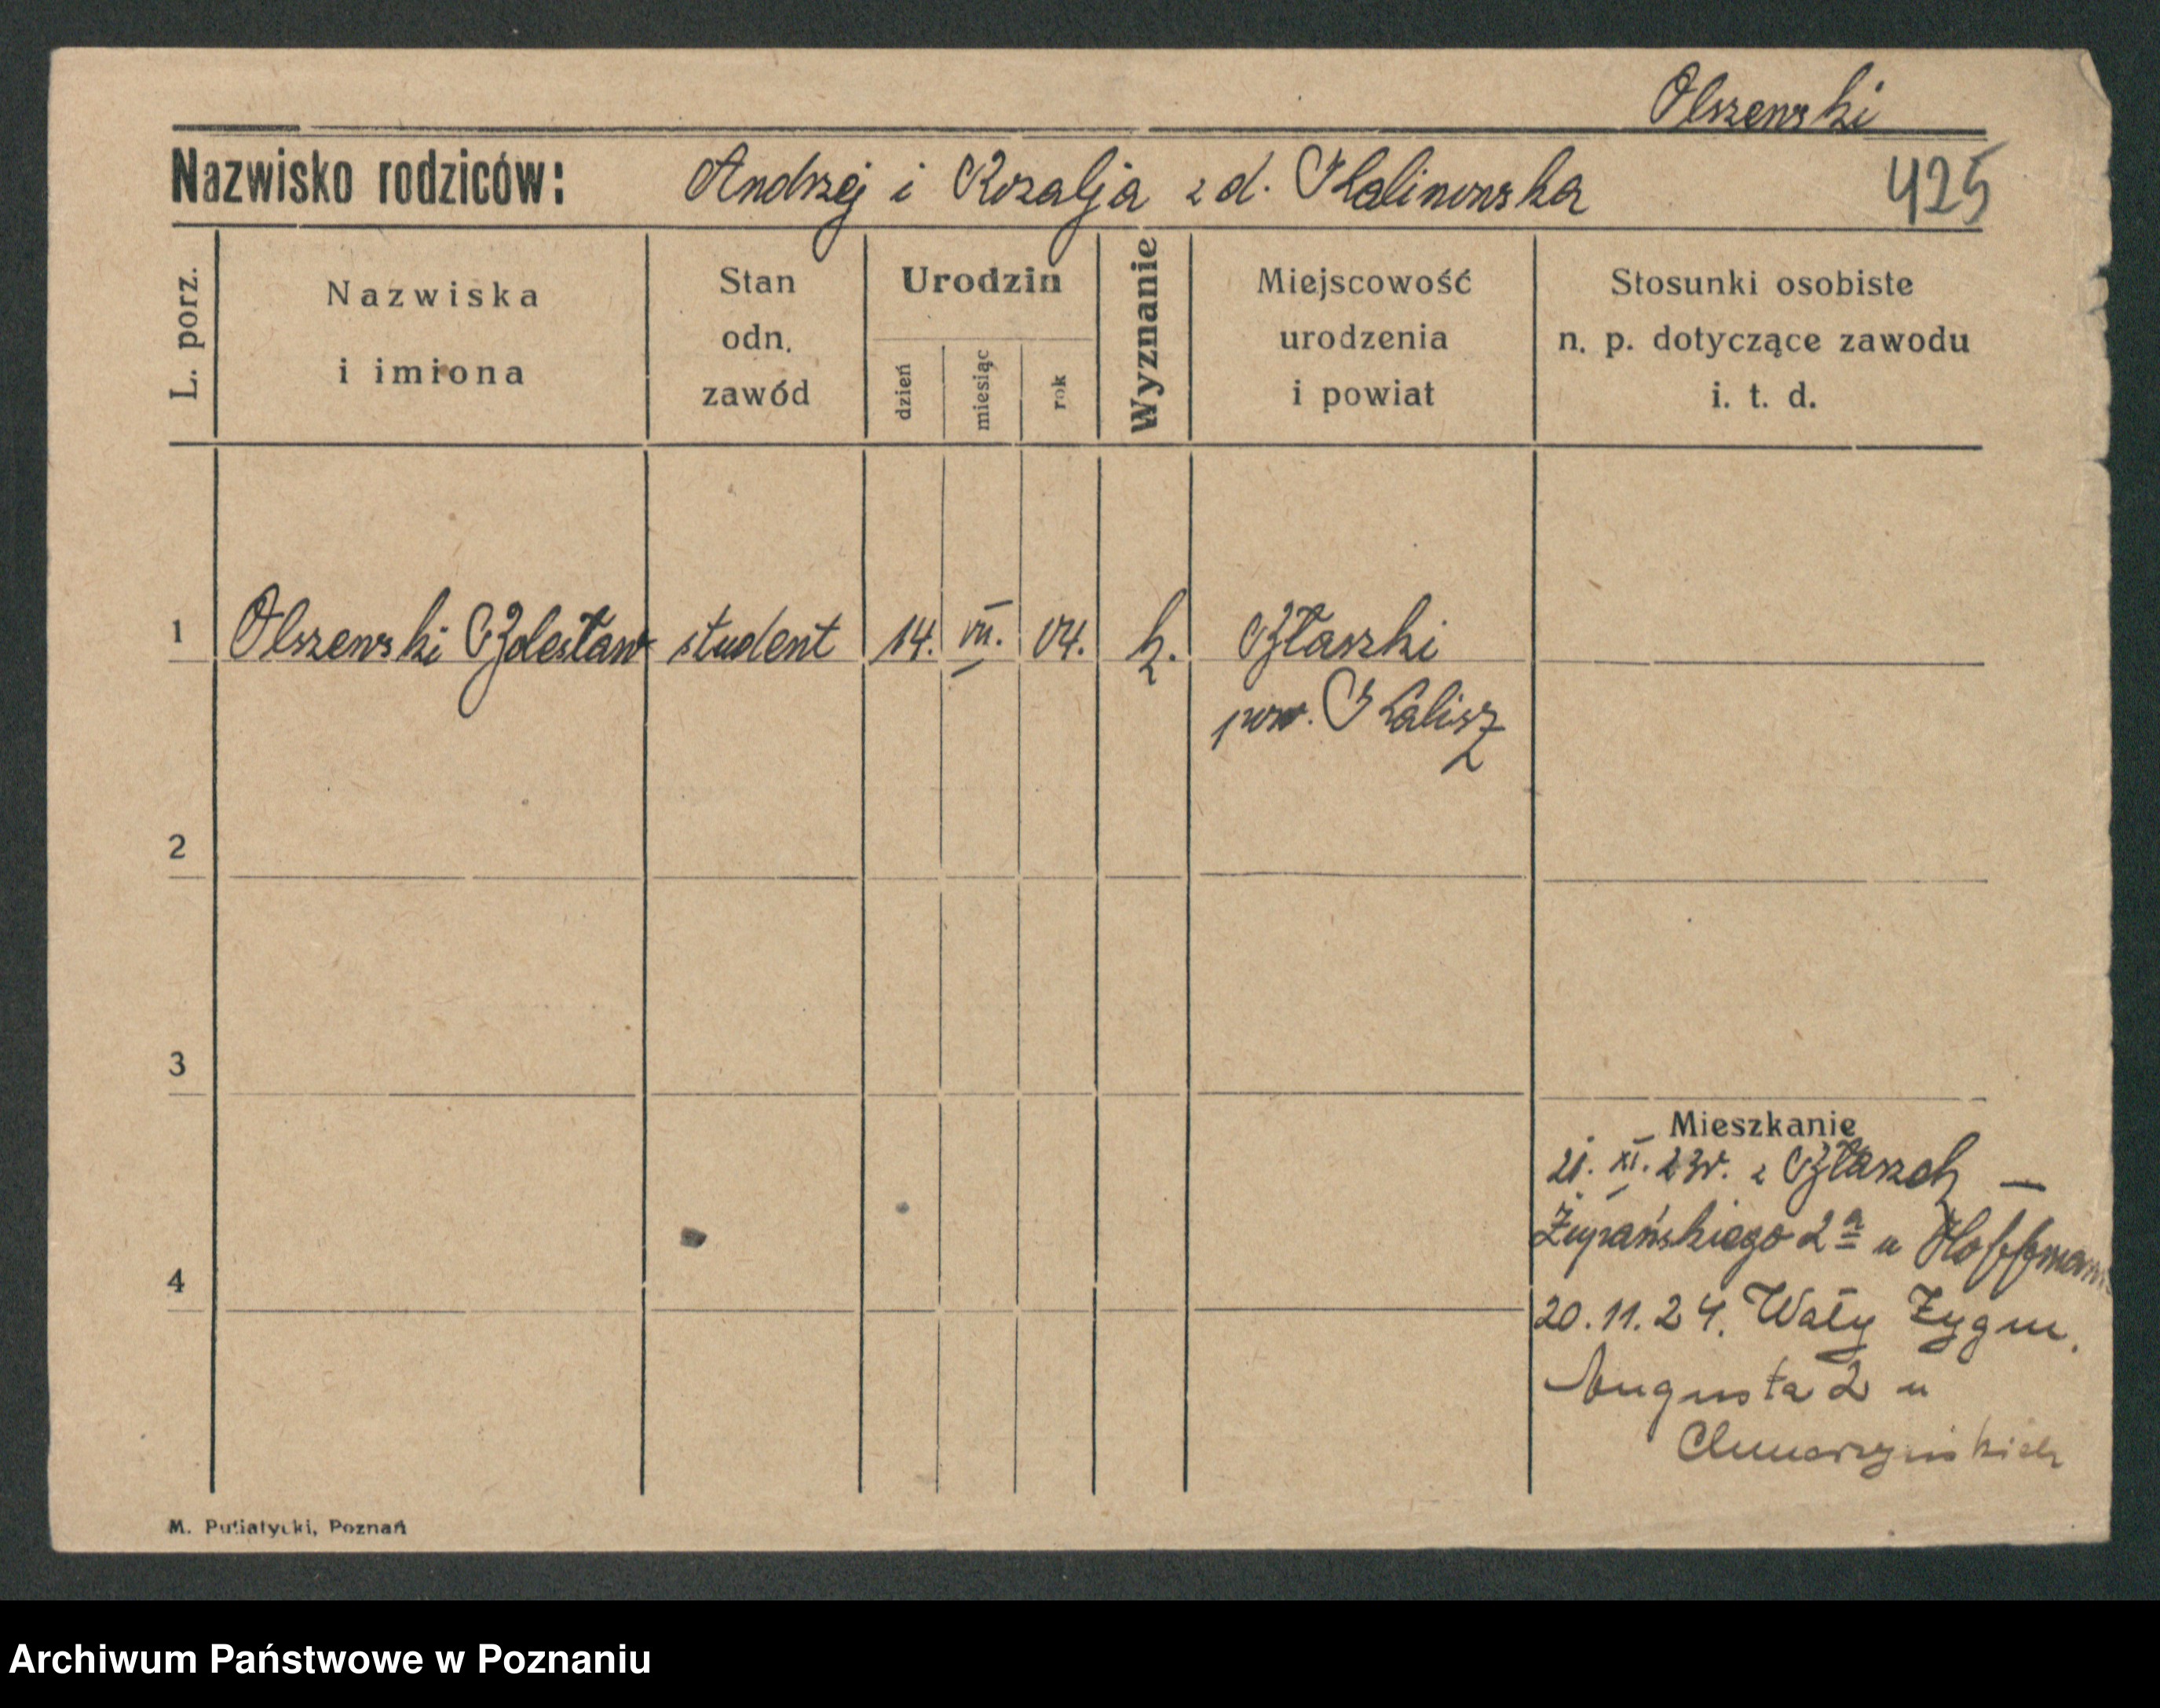 Olszewski
Nazwisko rodziców: Andrzej i Rozalja z d. Kalinowska 425
L. porz.
Nazwiska i imiona
Stan odn. zawód
Urodzin
dzień miesiąc rok
Wyznanie
Miejscowość urodzenia i powiat
Stosunki osobiste n. p. dotyczące zawodu i. t. d.
1 Olszewski Zdzesław student 14. VII. 04. k. Błaszki
pow. Kalisz
2
3
Mieszkanie
21. XI. 23r. z Błaszek —
Żupańskiego 2a u Hoffmann
4
20.11.24. Wały Zygm.
Augusta 2 u
M. Putiatycki, Poznań
Archiwum Państwowe w Poznaniu